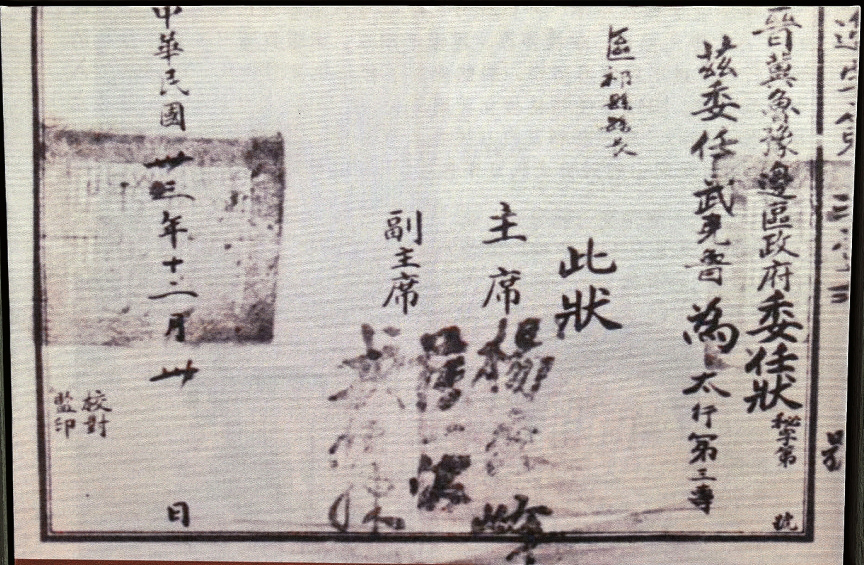 晉冀魯豫邊區政府委任狀 秘字第 號
茲委任武克魯為太行第三專
區祁縣縣長
此狀
主席 楊秀峯
副主席
中華民國卅三年十二月卅日
校對
監印